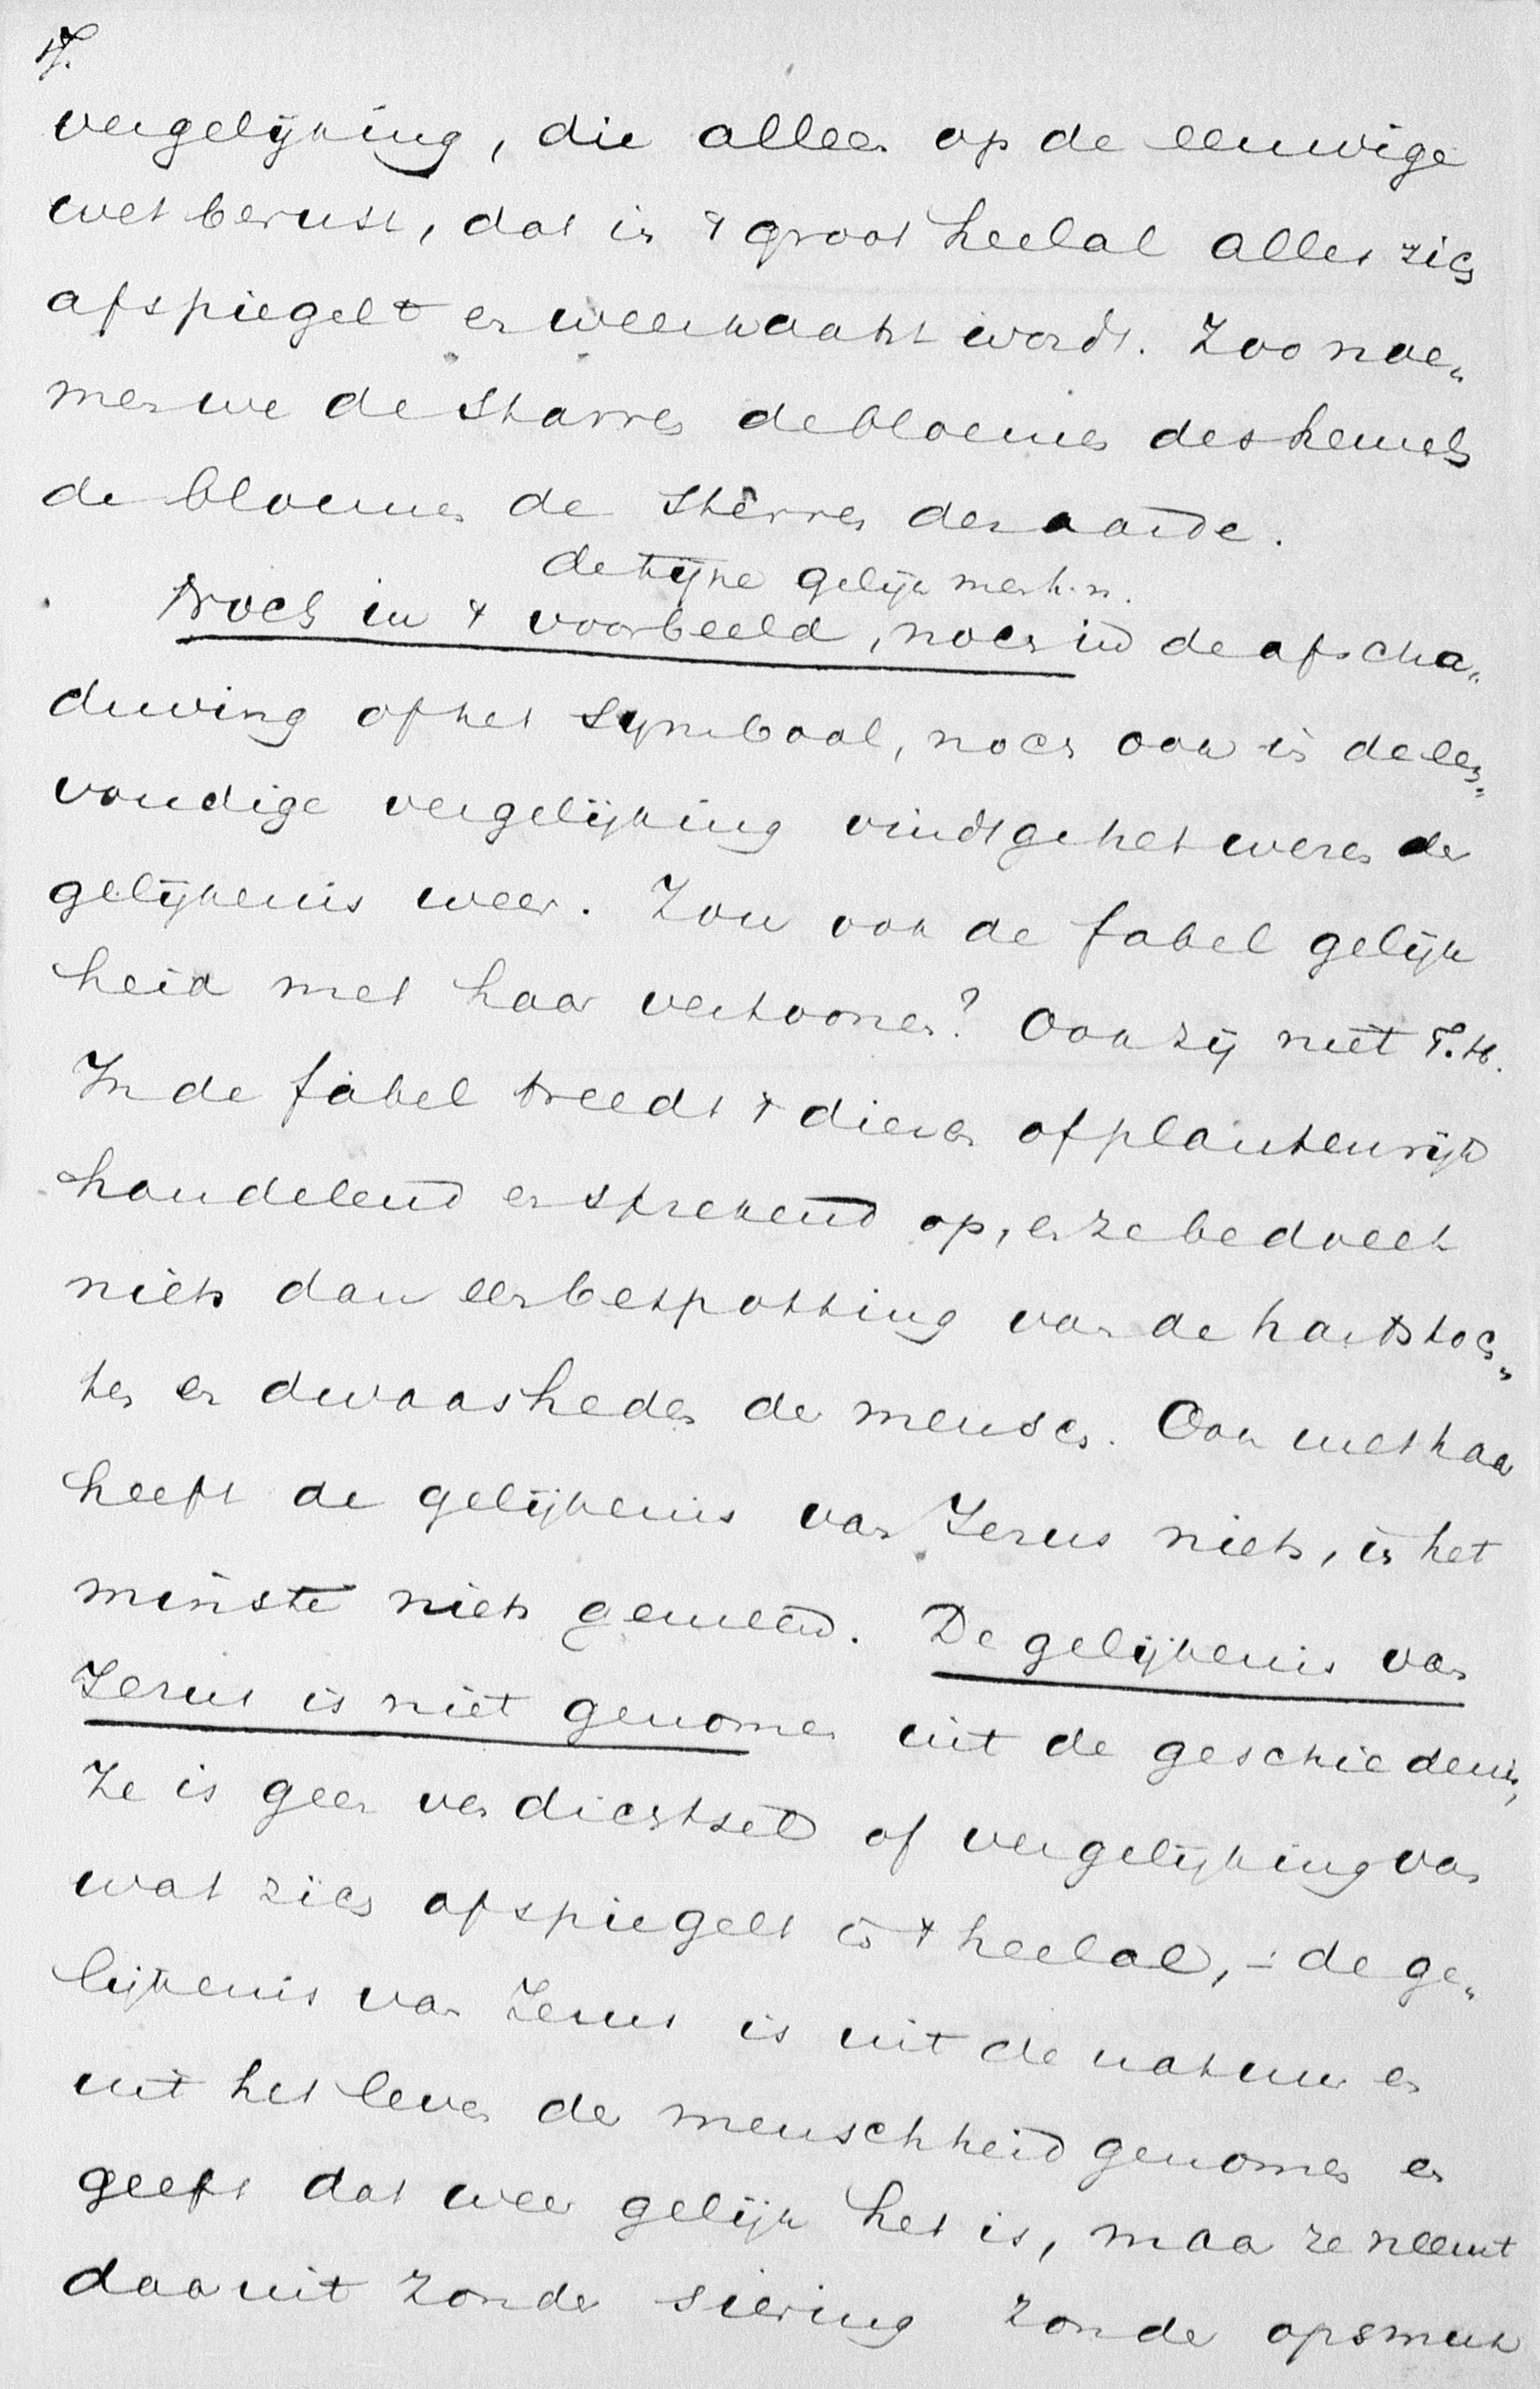 vergelijking, die alleen op de eeuwige
wet berust, dat in 't groot heelal alles zich
afspiegelt en weerkaatst wordt. Zoo noe„
men we de starren de bloemen des hemels
de bloemen de sterren der aarde.
de rijke gelijk
Noch in 't voorbeeld, noch in de afscha„
duwing of het symbool, noch ook in de een„
voudige vergelijking vindt ge het wezen der
gelijkenis weer. Zou ook de fabel gelijk
heid met haar vertoonen? Ook zij niet T.H.
In de fabel treedt 't dieren of plantenrijk
handelend en sprekend op, en ze bedoelt
niets dan een bespotting van de hartstoch„
ten en dwaasheden der menschen. Ook met haar
heeft de gelijkenis van Jezus niets, in het
minste niets gemeen. De gelijkenis van
Jezus is niet genomen uit de geschiedenis,
Ze is geen verdichtsel of vergelijking van
wat zich afspiegelt in 't heelal, – de ge„
lijkenis van Jezus is uit de natuur en
uit het leven der menschheid genomen en
geeft dat weer gelijk het is, maar ze neemt
daaruit zonder siering zonder opsmuk